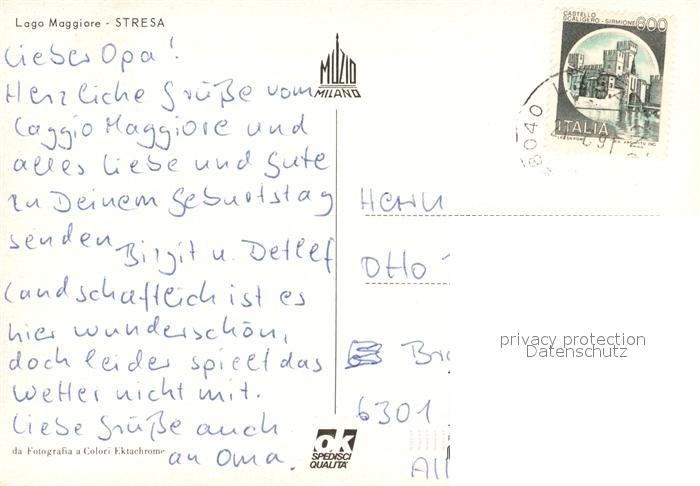 Lago Maggiore - STRESA
Lieber Opa!
Herzliche Grüße vom
Laggio Maggiore und
alles Liebe und Gute
zu Deinem Geburtstag
senden Birgit u. Detlef
Landschaftlich ist es
hier wunderschön,
doch leider spielt das
Wetter nicht mit.
Liebe Grüße auch
an Oma.
da Fotografia a Colori Ektachrome
MUZIO
MILANO
CASTELLO
SCALIGERO - SIRMIONE
800
ITALIA
Herrn
Otto
6301
ok
SPEDISCI
QUALITÀ
privacy protection
Datenschutz